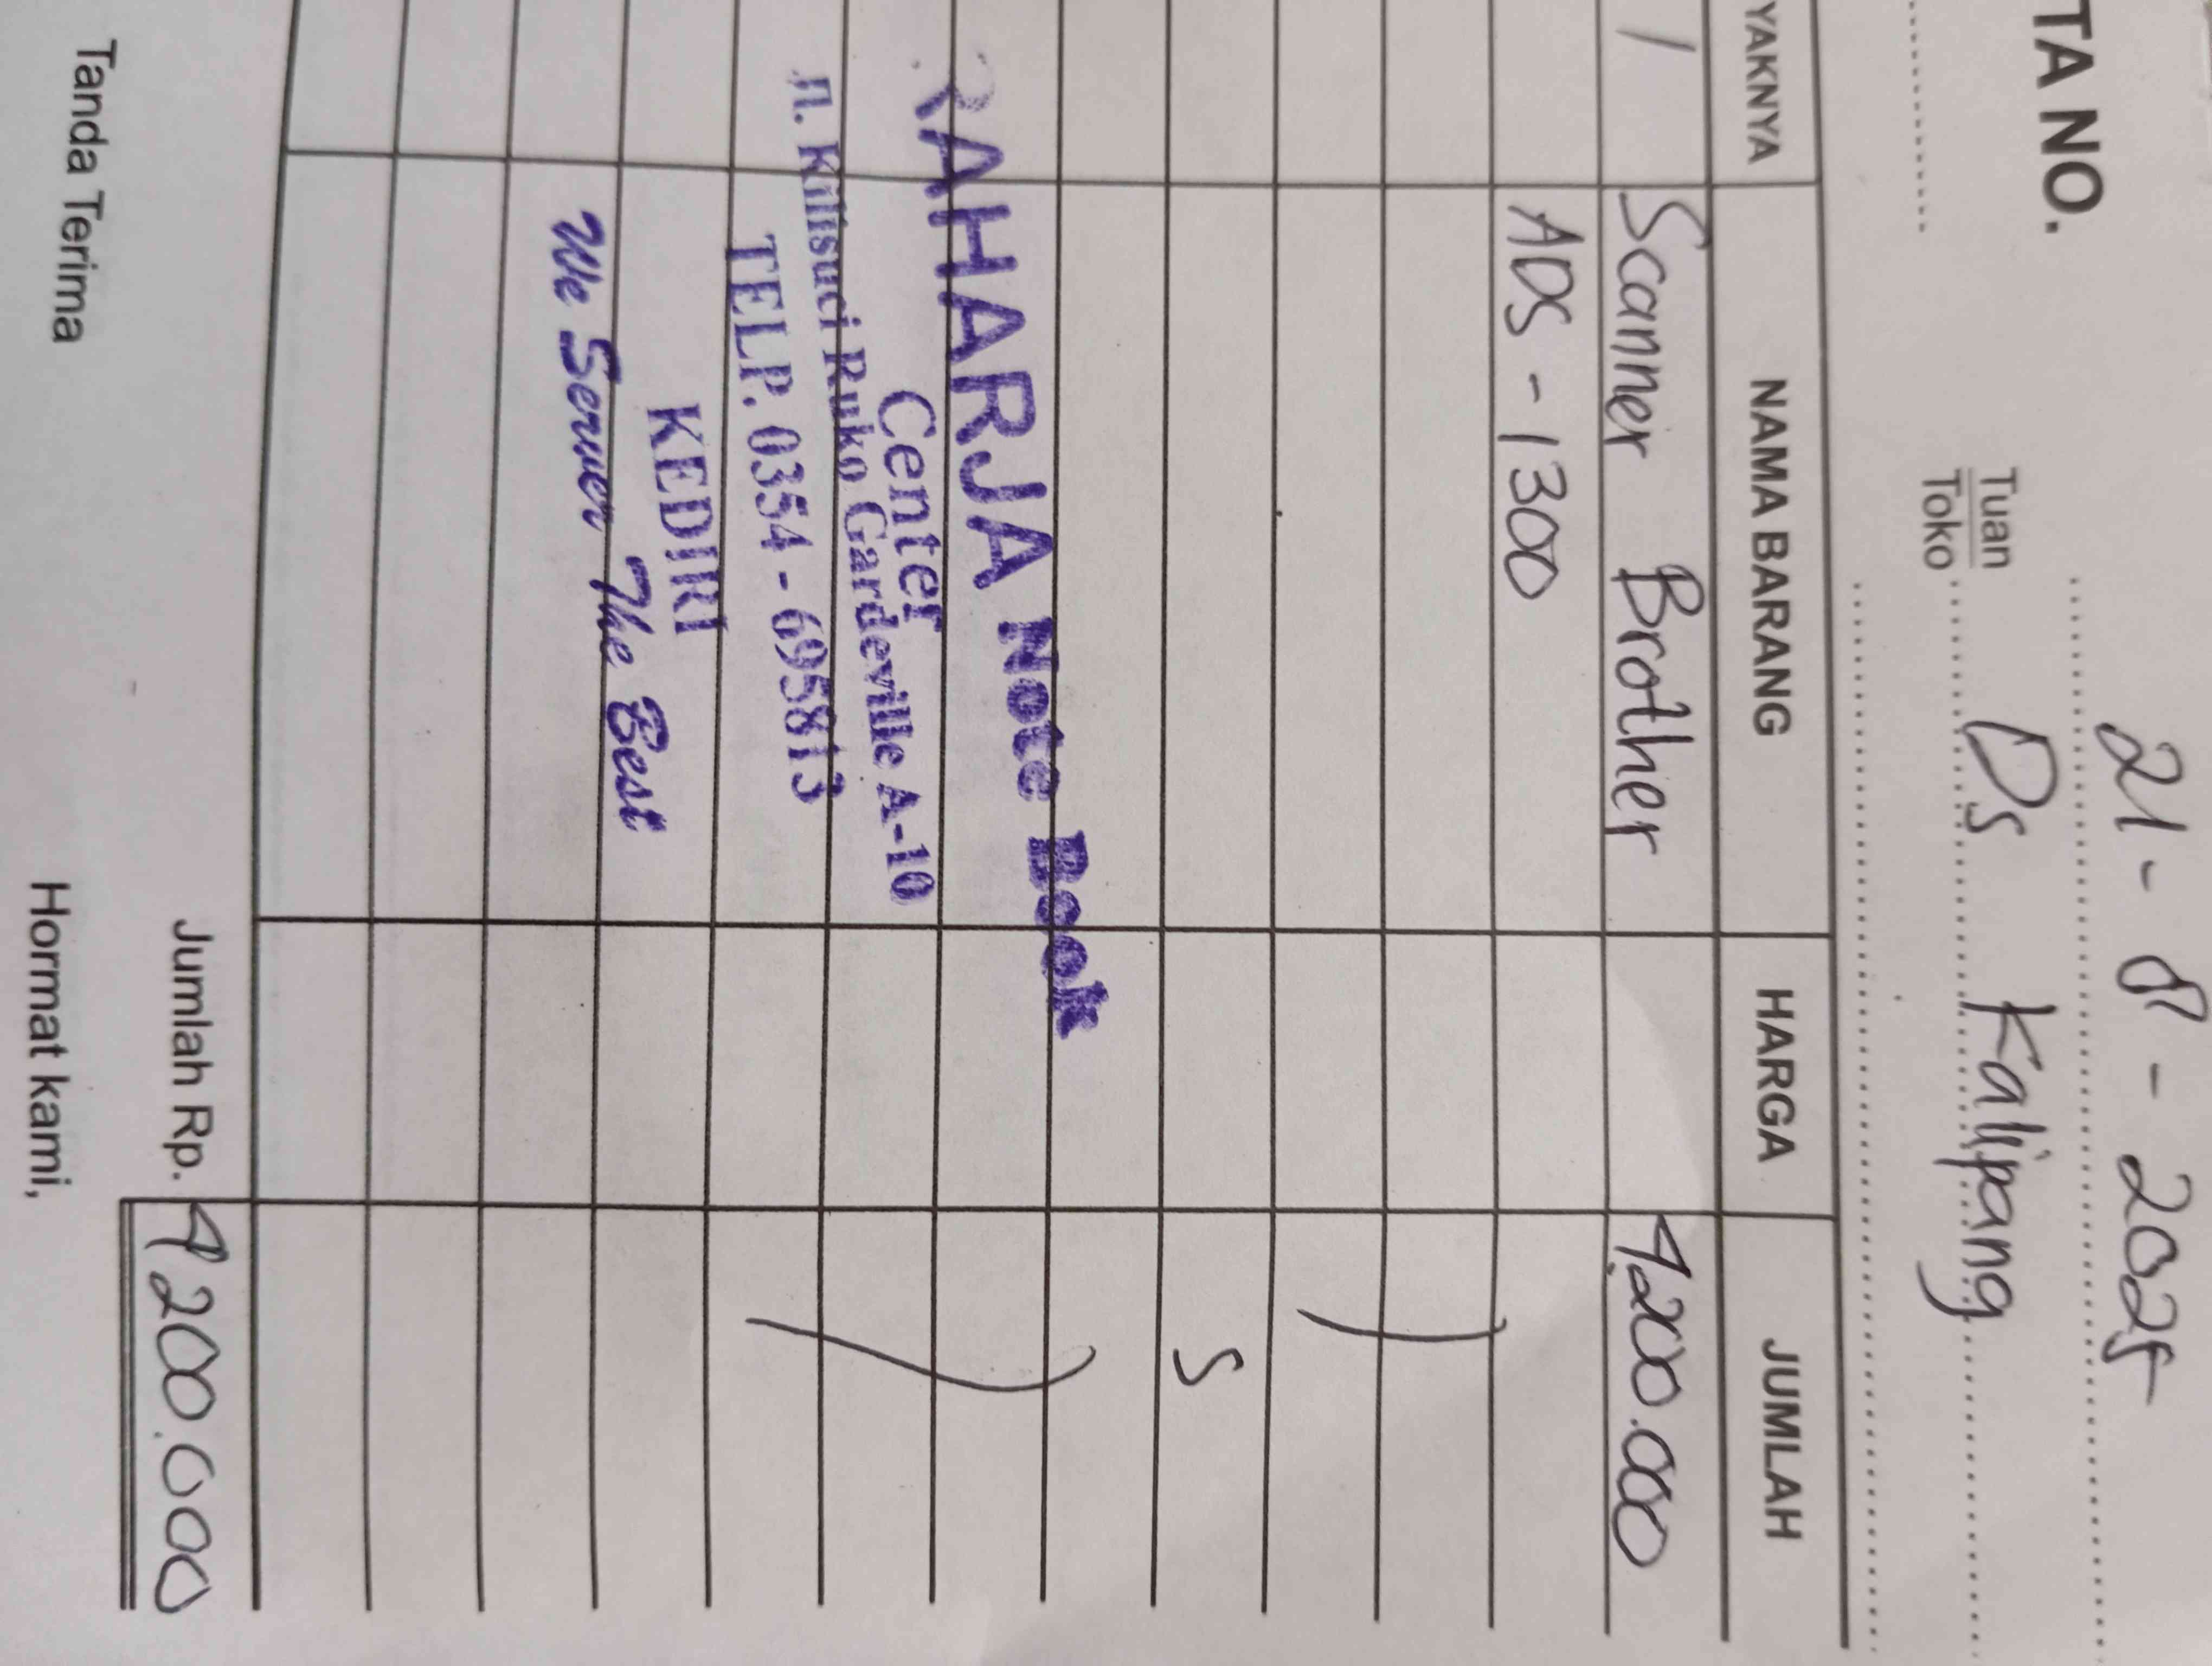 21-8-2025
TA NO.
Tuan
Toko
Ds Kalipang
YAKNYA NAMA BARANG HARGA JUMLAH
1 Scanner Brother 4.200.000
ADS-1300
S
RAHARJA Note Book
Center
Jl. Kilisuci Ruko Gardeville A-10
TELP. 0354 - 695813
KEDIRI
We Server The Best
Jumlah Rp. 4 200.000
Tanda Terima
Hormat kami,